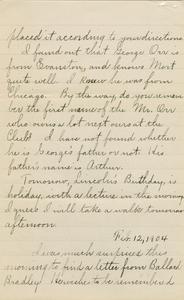 placed it according to your directions
I found out that George Orr is
from Evanston, and knows Mort
quite well. I knew he was from
Chicago. By the way, do you remem-
ber the first name of the Mr. Orr
who owns a lot next ours at the
Club? I have not found whether
he is George's father or not. His
father's name is Arthur.
Tomorrow, Lincoln's Birthday, is
holiday, with a lecture in the morning
I guess I will take a walk tomorrow
afternoon.
Feb. 12, 1904
I was much surprised this
morning to find a letter from Ballard
Bradley. He wishes to be remembered